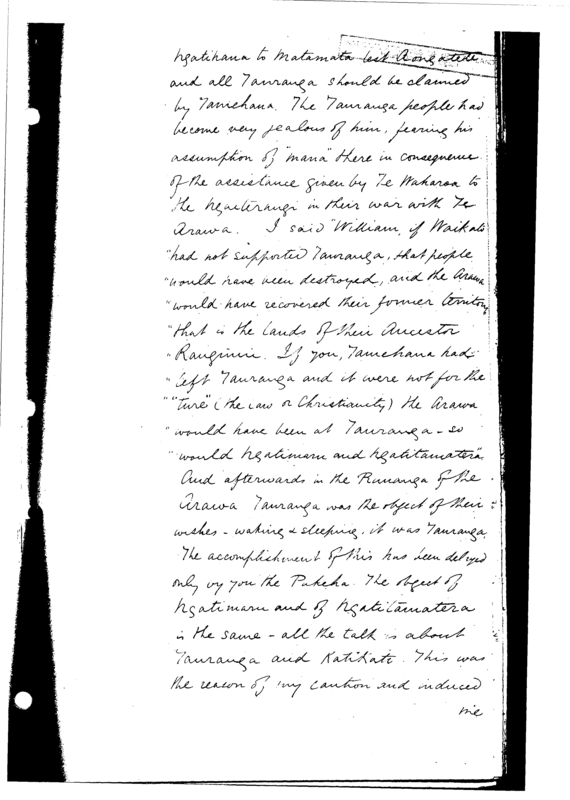 Ngatihaua to Matamata lest Aongatete
and all Tauranga should be claimed
by Tamehana. The Tauranga people had
become very jealous of him, fearing his
assumption of "mana" there in consequence
of the assistance given by Te Waharoa to
the Ngaiterangi in their war with Te
Arawa. I said "William, if Waikato
"had not supported Tauranga, that people
"would have been destroyed, and the Arawa
"would have recovered their former territory
"that is the lands of their Ancestor
"Ranginui. If you, Tamehana had
"left Tauranga and it were not for the
""Ture" (the law or Christianity) the Arawa
"would have been at Tauranga - so
"would Ngatimaru and Ngatitamatera".
And afterwards in the Runanga of the
Arawa Tauranga was the object of their
wishes - waking & sleeping, it was Tauranga.
The accomplishment of this has been delayed
only by you the Pakeha. The object of
Ngatimaru and of Ngatitamatera
is the same - all the talk is about
Tauranga and Katikati. This was
the reason of my caution and induced
me